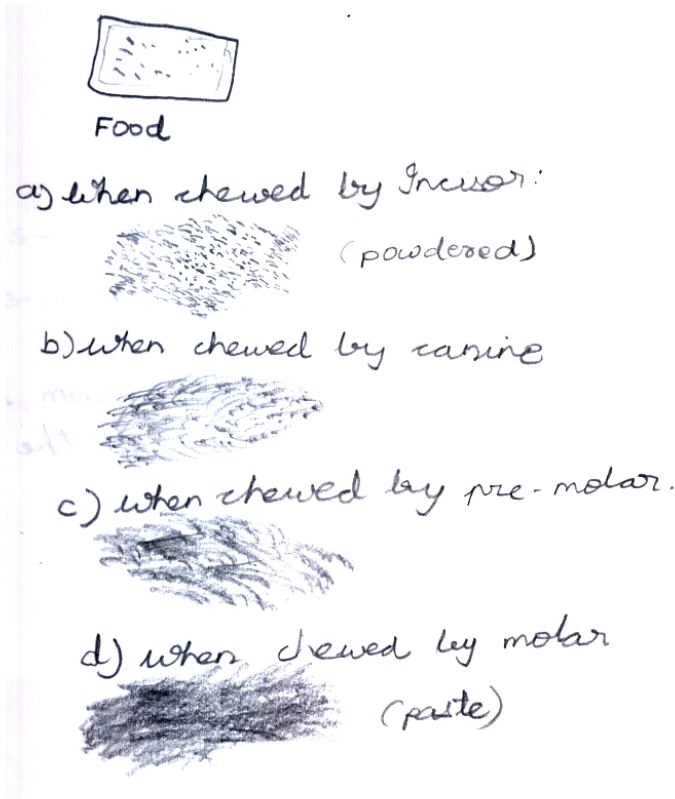 Food
a) When chewed by Incisor:
(powdered)
b) when chewed by canine
c) when chewed by pre-molar.
d) when chewed by molar
(paste)